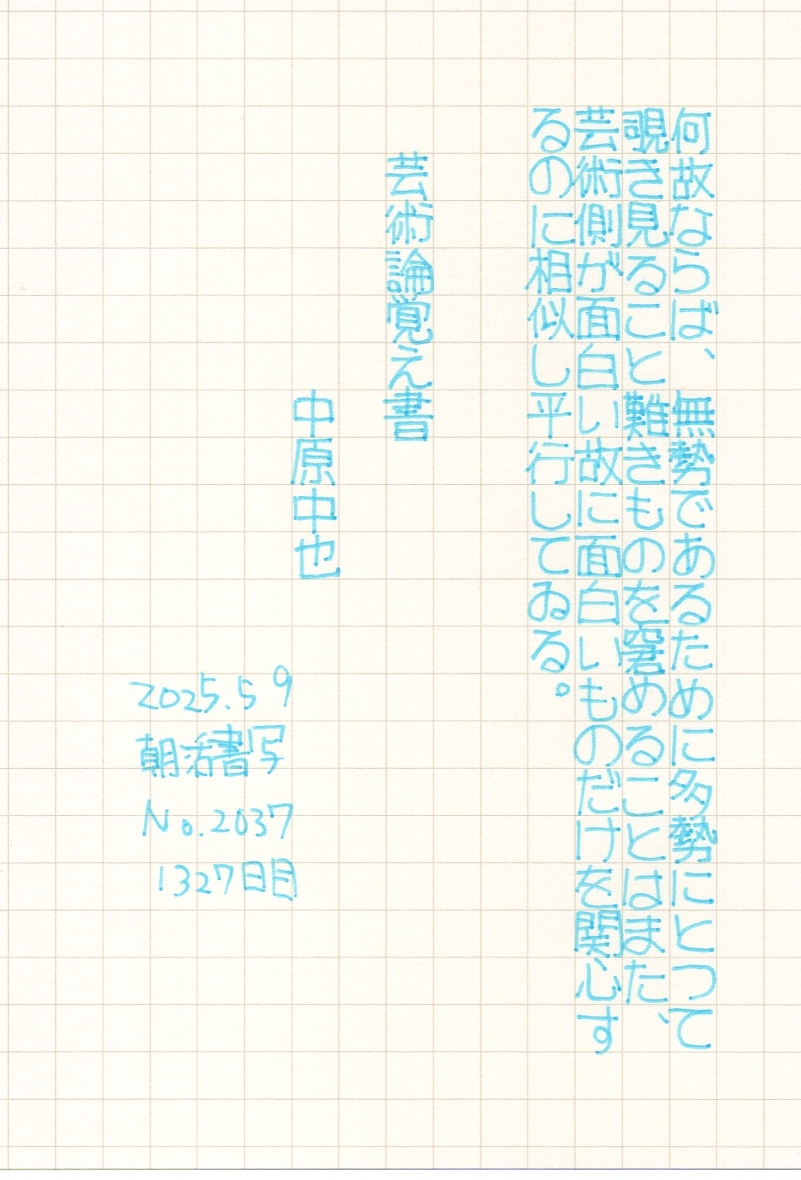 何故ならば、無勢であるために多勢にとつて
覗き見ること難きものを窘めることはまた、
芸術側が面白い故に面白いものだけを関心す
るのに相似し平行してゐる。
芸術論覚え書
中原中也
2025.5.9
朝活書写
No.2037
1327日目